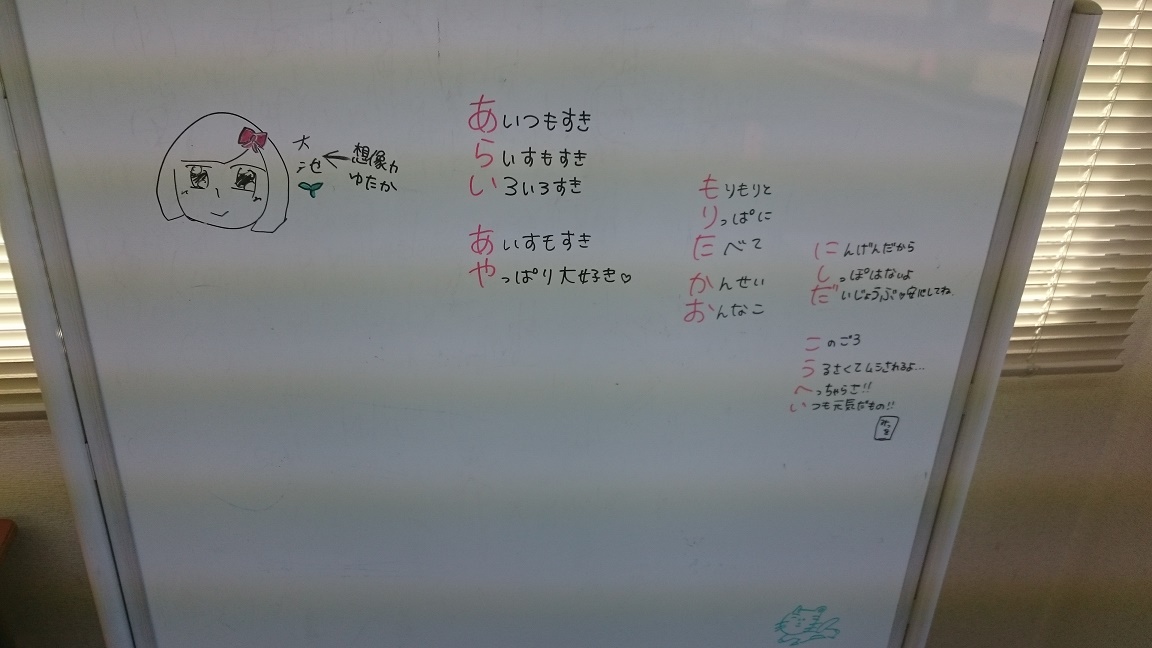 大池
想像力
ゆたか
あいつもすき
らいすもすき
いろいろすき
あいすもすき
やっぱり大好き♡
もりもりと
りっぱに
たべて
かんせい
おんなこ
にんげんだから
しっぽはないよ
だいじょうぶ安心してね。
このごろ
うるさくてムシされるよ…
へっちゃらさ!!
いつも元気だもの!!